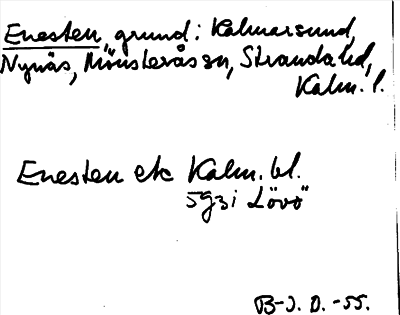 Enesten, grund i Kalmarsund,
Nynäs, Mönsterås sn, Stranda hd,
Kalm. l.
Enesten ek Kalm. bl.
5g3i Lövö
B-J. D. -55.